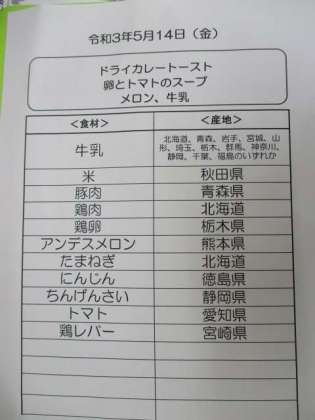 令和3年5月14日（金）
ドライカレートースト
卵とトマトのスープ
メロン、牛乳
＜食材＞ ＜産地＞
牛乳 北海道、青森、岩手、宮城、山
形、埼玉、栃木、群馬、神奈川、
静岡、千葉、福島のいずれか
米 秋田県
豚肉 青森県
鶏肉 北海道
鶏卵 栃木県
アンデスメロン 熊本県
たまねぎ 北海道
にんじん 徳島県
ちんげんさい 静岡県
トマト 愛知県
鶏レバー 宮崎県